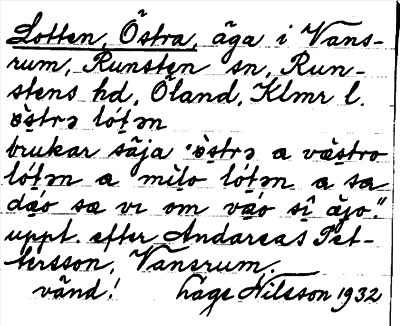 Lotten, Östra, äga i Vans-
rum, Runsten sn, Run-
stens hd, Öland, Klmr l.
ös̱trə lóṯən
brukar säja "ös̱trə a væs̱tro
lóṯən a mìlo lóṯən a sa
dạo sæ vı om vạo sî äjo."
uppt. efter Andareas Pet-
tersson, Vansrum.
vänd! Låge Nilsson 1932